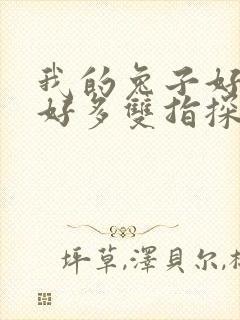 我的兔子好
好多雙指探
坪草,澤貝尔,杉